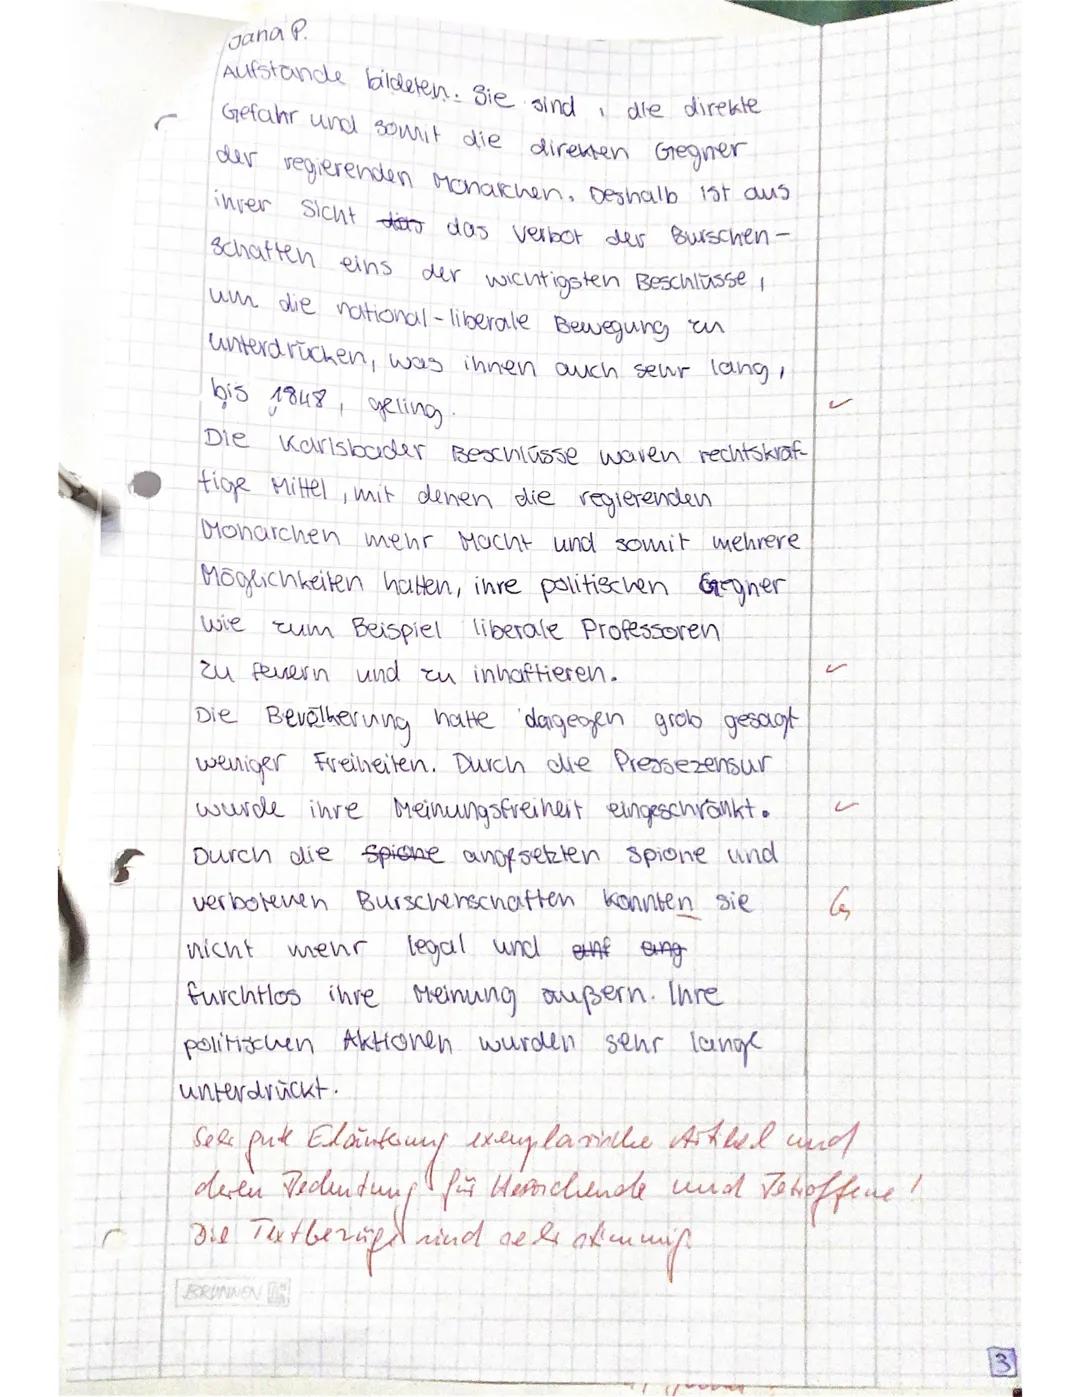 Jana P.
Aufstände bildeten. Sie sind, die direkte
Gefahr und somit die direkten Gegner
der regierenden Monarchen. Deshalb ist aus
ihrer Sicht das das Verbot der Burschen-
schaften eins der wichtigsten Beschlüsse,
um die national-liberale Bewegung zu
unterdrücken, was ihnen auch sehr lang,
bis 1848, geling.
Die Karlsbader Beschlüsse waren rechtskräf-
tige Mittel, mit denen die regierenden
Monarchen mehr Macht und somit mehrere
Möglichkeiten hatten, ihre politischen Gegner
wie zum Beispiel liberale Professoren
zu feuern und zu inhaftieren.
Die Bevölkerung hatte dagegen grob gesagt
weniger Freiheiten. Durch die Pressezensur
wurde ihre Meinungsfreiheit eingeschränkt.
Durch die Spione angesetzten Spione und
verbotenen Burschenschaften konnten sie
nicht mehr legal und
furchtlos ihre Meinung äußern. Ihre
politischen Aktionen wurden sehr lange
unterdrückt.
Sehr gute Erläuterung exemplarische Artikel und
deren Bedeutung für Herrschende und Betroffene!
Die Textbezüge sind sehr stimmig.
BRUNNEN
3